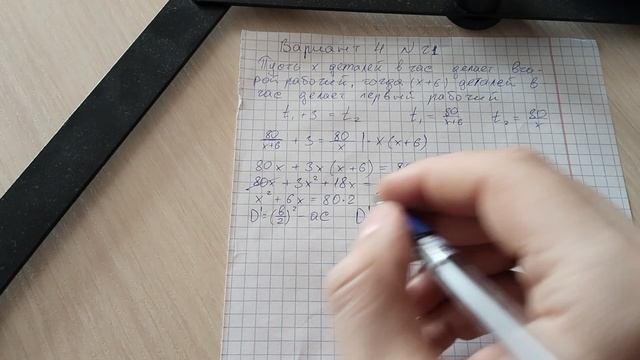 Вариант 4 №21
Пусть x деталей в час делает вто-
рой рабочий, тогда (x+6) деталей в
час делает первый рабочий
t₁ + 3 = t₂ t₁ = 80/(x+6) t₂ = 80/x
80/(x+6) + 3 = 80/x |· x (x+6)
80x + 3x (x+6) =
80x + 3x² + 18x
x² + 6x = 80·2
D' = (b/2)² - ac D'